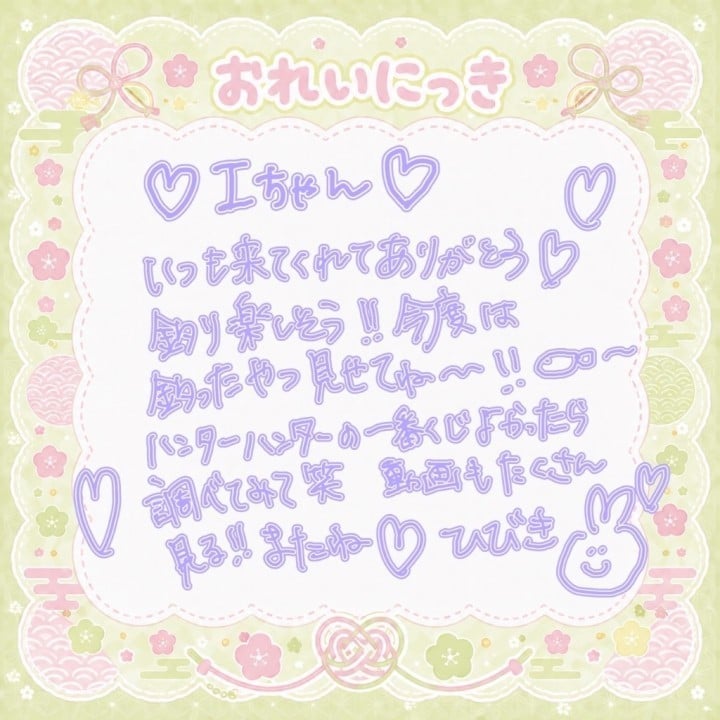 おれいにっき
♡ Iちゃん ♡ ♡
いつも来てくれてありがとう♡
釣り楽しそう!!今度は
釣ったやつ見せてね〜!!
ハンターハンターの一番くじよかったら
調べてみて笑 動画もたくさん
見る!!またね♡ ひびき